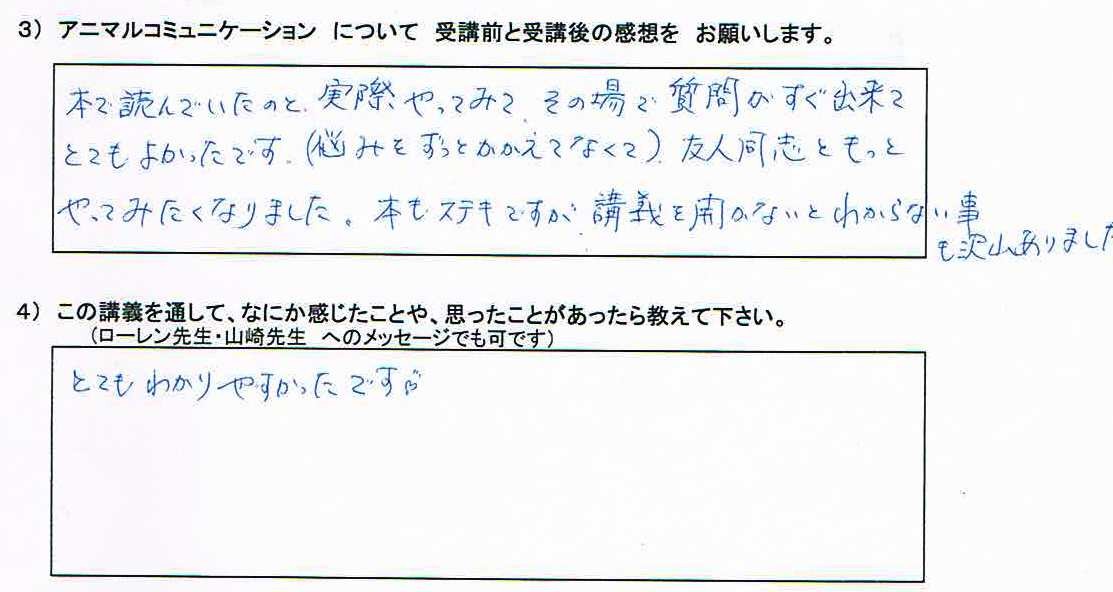 3) アニマルコミュニケーション について 受講前と受講後の感想を お願いします。
本で読んでいたのと、実際やってみて、その場で質問がすぐ出来て
とてもよかったです。(悩みをずっとかかえてなくて)、友人同志ともっと
やってみたくなりました。本もステキですが、講義を聞かないとわからない事
も沢山ありました
4) この講義を通して、なにか感じたことや、思ったことがあったら教えて下さい。
(ローレン先生・山崎先生 へのメッセージでも可です)
とてもわかりやすかったです